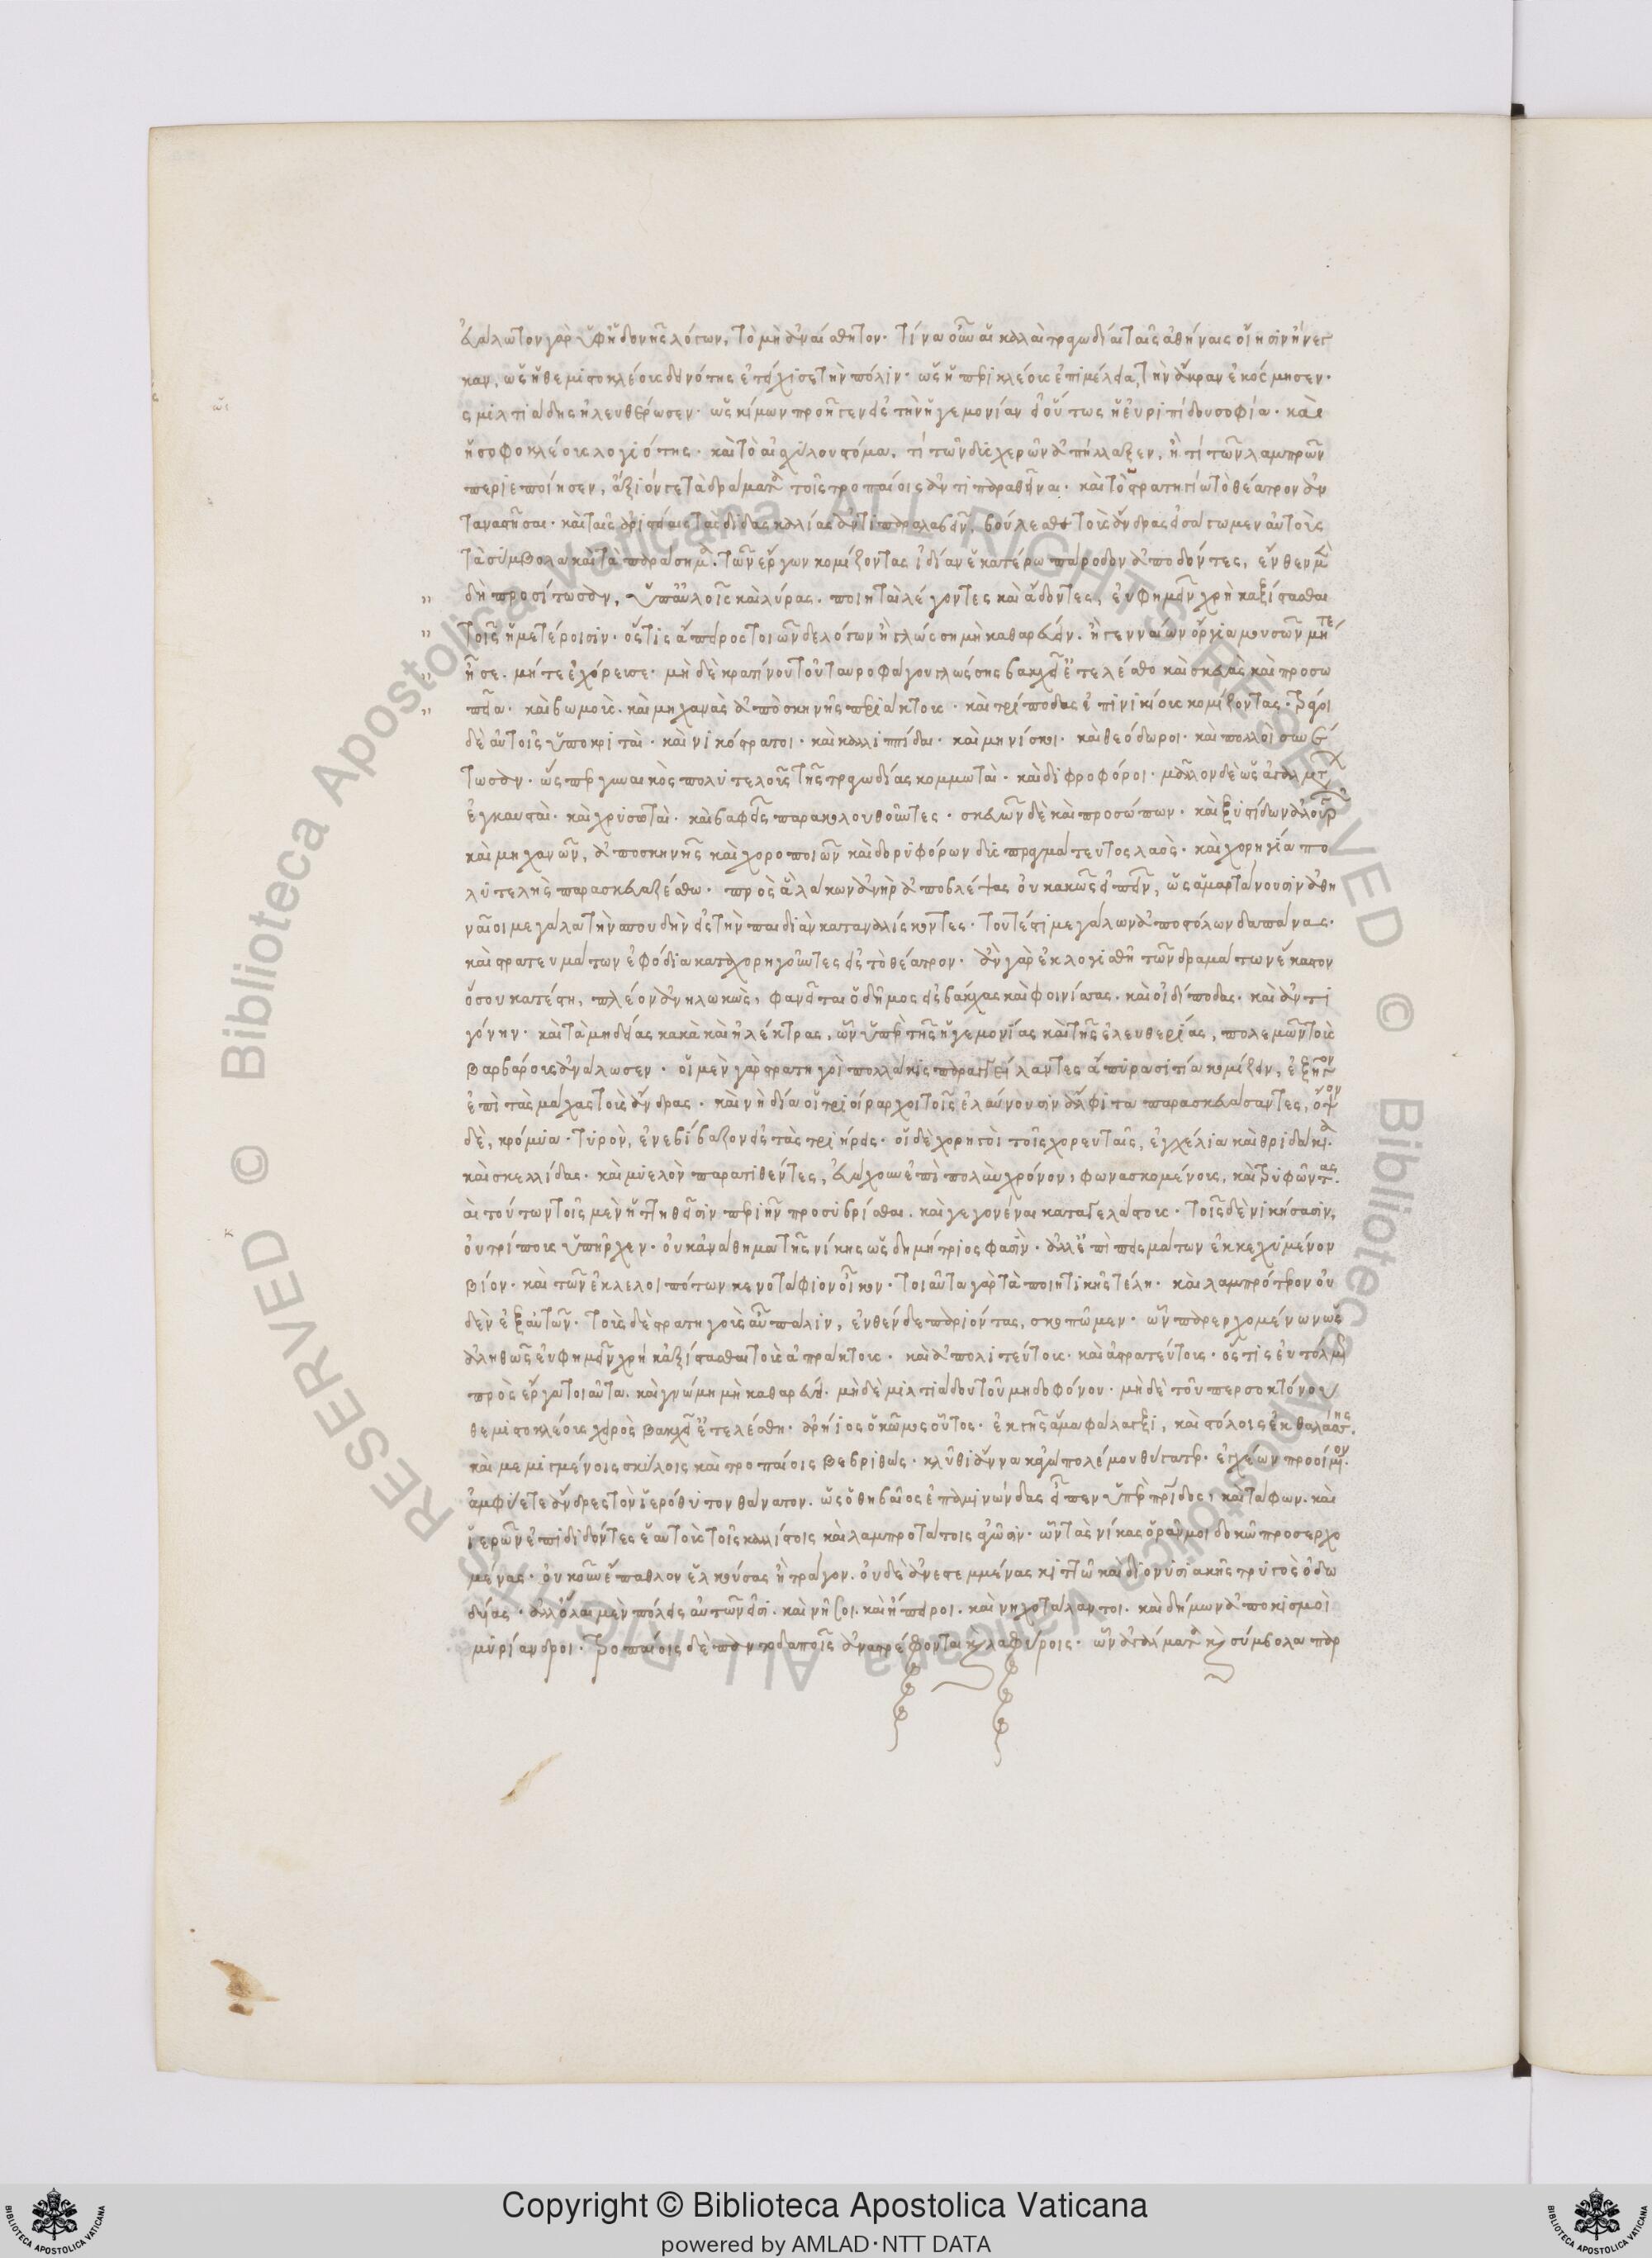 εὐάλωτον γὰρ ὑφ' ἡδονῆς λόγων, τὸ μὴ ἀναίσθητον· τίνα οὖν αἱ καλαὶ τραγωδίαι ταῖς ἀθήναις ὄνησιν ἤνεγ
καν, ὡς ἡ θεμιστοκλέους δεινότης ἐτείχισε τὴν πόλιν· ὡς ἡ περικλέους ἐπιμέλεια, τὴν ἄκραν ἐκόσμησεν·
ς μιλτιάδης ἠλευθέρωσεν· ὡς κίμων προῆγεν εἰς τὴν ἡγεμονίαν εἰ οὕτως ἡ εὐριπίδου σοφία· καὶ
ἡ σοφοκλέους λογιότης· καὶ τὸ αἰσχύλου στόμα. τί τῶν δυσχερῶν ἀπήλλαξεν, ἢ τί τῶν λαμπρῶν
περιεποίησεν, ἄξιόν γε τὰ δράματα τοῖς τροπαίοις ἀντιπαραθεῖναι· καὶ τῷ στρατηγίῳ τὸ θέατρον ἀν
ταναστῆσαι· καὶ ταῖς ἀριστείαις τὰς διδασκαλίας ἀντιπαραλαβεῖν. βούλεσθε τοὺς ἄνδρας εἰσάγωμεν αὐτοὺς
τὰ σύμβολα καὶ τὰ παράσημα τῶν ἔργων κομίζοντας ἰδίαν ἑκατέρῳ πάροδον ἀποδόντες, ἔνθεν μὲν
δὴ προσίτωσαν, ὑπ' αὐλοῖς καὶ λύραις. ποιηταὶ λέγοντες καὶ ᾄδοντες, εὐφημεῖν χρὴ καξίστασθαι
τοῖς ἡμετέροισιν· ὅστις ἄπειρος τοιῶνδε λόγων ἢ γλώσση μὴ καθαρεύειν. ἢ γενναίων ὄργια μουσῶν μήτε
ᾖσε. μήτε ἐχόρευσε· μὴ δὲ κρατίνου τοῦ ταυροφάγου γλώσσης βακχεῖ' ἐτελέσθη καὶ σκευὰς καὶ προσω
πεῖα· καὶ βωμοὺς. καὶ μηχανὰς ἀπὸ σκηνῆς περιάκτους· καὶ τρίποδας ἐπινικίους κομίζοντας·
δὲ αὐτοῖς ὑποκριταὶ· καὶ νικόστρατοι· καὶ καλλιππίδαι· καὶ μηνίσκοι· καὶ θεόδωροι· καὶ πολλοὶ
τωσαν· ὥσπερ γυναικὸς πολυτελοῦς τῆς τραγωδίας κομμωταὶ· καὶ διφροφόροι· μᾶλλον δὲ ὡς ἀγαλμάτων
ἐγκαυσταὶ· καὶ χρυσωταὶ· καὶ βαφεῖς παρακολουθοῦντες· σκευῶν δὲ καὶ προσώπων· καὶ ξυστίδων ἁλουρ
καὶ μηχανῶν, ἀπὸ σκηνῆς καὶ χοροποιῶν καὶ δορυφόρων δυσπραγμάτευτος λαὸς· καὶ χορηγία πο
λυτελὴς παρασκευαζέσθω· πρὸς ἃ λάκων ἀνὴρ ἀποβλέψας οὐ κακῶς εἶπεν, ὡς ἁμαρτάνουσιν ἀθη
ναῖοι μεγάλα τὴν σπουδὴν εἰς τὴν παιδιὰν καταναλίσκοντες· τουτέστι μεγάλων ἀποστόλων δαπάνας·
καὶ στρατευμάτων ἐφόδια καταχορηγοῦντες εἰς τὸ θέατρον· ἂν γὰρ ἐκλογισθῆ τῶν δραμάτων ἕκαστον
ὅσου κατέστη, πλέον ἀνηλωκὼς, φανεῖται ὁ δῆμος εἰς βάκχας καὶ φοινίσσας. καὶ οἰδίποδας· καὶ ἀντι
γόνην· καὶ τὰ μηδείας κακὰ καὶ ἠλέκτρας, ὧν ὑπὲρ τῆς ἡγεμονίας καὶ τῆς ἐλευθερίας, πολεμῶν τοὺς
βαρβάρους ἀνάλωσεν· οἱ μὲν γὰρ στρατηγοὶ πολλάκις παραγγείλαντες ἄπυρα σιτία κομίζειν, ἐξῆγον
ἐπὶ τὰς μάχας τοὺς ἄνδρας· καὶ νὴ δία οἱ τριήραρχοι τοῖς ἐλαύνουσιν ἄλφιτα παρασκευάσαντες, ὄψον
δὲ, κρόμυα· τυρὸν, ἐνεβίβαζον εἰς τὰς τριήρεις· οἱ δὲ χορηγοὶ τοῖς χορευταῖς, ἐγχέλια καὶ θριδάκια
καὶ σκελλίδας· καὶ μυελὸν παρατιθέντες, εὐώχουν ἐπὶ πολὺν χρόνον, φωνασκουμένους, καὶ τρυφῶντας
αι τούτων τοῖς μὲν ἡττηθεῖσιν περιῆν προσυβρίσθαι. καὶ γεγονέναι καταγελάστους· τοῖς δὲ νικήσασιν,
οὐ τρίπους ὑπῆρχεν· οὐκ ἀνάθημα τῆς νίκης ὡς δημήτριος φασὶν· ἀλλ' ἐπίσπεισμα τῶν ἐκκεχυμένων
βίον· καὶ τῶν ἐκλελοιπότων κενοτάφιον οἴκων· τοιαῦτα γὰρ τὰ ποιητικῆς τέλη· καὶ λαμπρότερον οὐ
δὲν ἐξ αὐτῶν· τοὺς δὲ στρατηγοὺς αὖ πάλιν, ἐνθένδε παριόντας, σκοπῶμεν· ὧν παρερχομένων ὡς
ἀληθῶς εὐφημεῖν χρὴ καξίστασθαι τοὺς ἀπράκτους· καὶ ἀπολιτεύτους· καὶ ἀστρατεύτους· ὅστις εὐτολμεῖ
πρὸς ἔργα τοιαῦτα. καὶ γνώμη μὴ καθαρεύει. μὴ δὲ μιλτιάδου τοῦ μηδοφόνου· μὴ δὲ τοῦ περσοκτόνου
θεμιστοκλέους χειρὸς βακχεῖ' ἐτελέσθη· ἀρήιος ὁ κῶμος οὗτος· ἐκ γῆς ἅμα φάλαγξι, καὶ στόλοις ἐκ θαλάσσης
καὶ μεμιγμένοις σκύλοις καὶ τροπαίοις βεβριθὼς· κλῦθι ἄννα καὶ πολέμου θύγατερ· ἐγχέων προοίμιον
ἀμφύετε ἄνδρες τὸν ἱερόθυτον θάνατον. ὡς ὁ θηβαῖος ἐπαμινώνδας εἶπεν ὑπὲρ πατρίδος, καὶ τάφων. καὶ
ἱερῶν ἐπιδιδόντες ἑαυτοὺς τοῖς καλλίστοις καὶ λαμπροτάτοις ἀγῶσιν· ὧν τὰς νίκας ὁρᾶν μοι δοκῶ προσερχο
μένας· οὐ βοῦν ἔπαθλον ἑλκούσας ἢ τράγον. οὐδὲ ἀνεστεμμένας κιττῷ καὶ διονυσιακῆς τρυγὸς ὀδω
δυίας· ἀλλ' ὅλαι μὲν πόλεις αὐτῶν εἰσι. καὶ νῆσοι. καὶ ἤπειροι. καὶ νηοὶ χοτάλαντοι. καὶ δήμων ἀποικισμοὶ
μυρίανδροι· τροπαίοις δὲ παντοδαποῖς ἀναστρέφονται καὶ λαφύροις· ὧν ἀγάλματα καὶ σύμβολα παρ